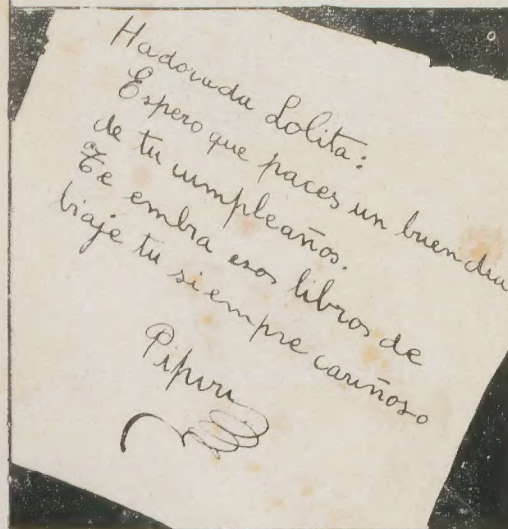 Hadorada Lolita:
Espero que paces un buen dia
de tu cumpleaños.
Te embia esos libros de
biaje tu siempre cariñoso
Pipiri